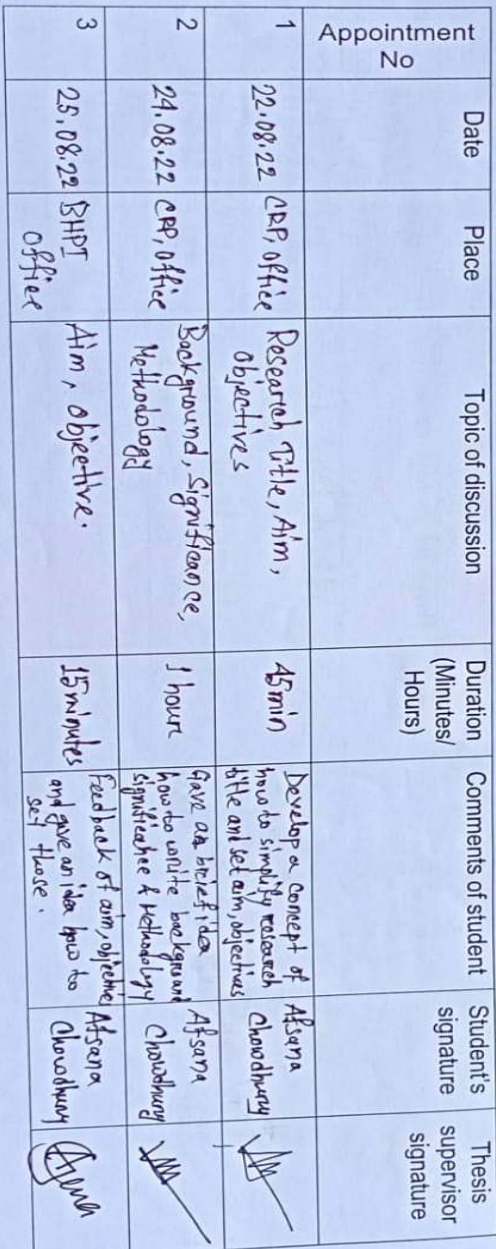 Appointment
No
Date
Place
Topic of discussion
Duration
(Minutes/
Hours)
Comments of student
Student's
signature
Thesis
supervisor
signature
1
22.08.22
CRP, office
Research Title, Aim,
Objectives
45min
Develop a concept of
how to simplify research
title and set aim, objectives
Afsana
Chowdhury
2
24.08.22
CRP, office
Background, Significance,
Methodology
1 hour
Gave an brief idea
how to write background
significance & Methodology
Afsana
Chowdhury
3
25.08.22
BHPI
office
Aim, objective.
15 minutes
Feedback of aim, objective
and gave an idea how to
set those.
Afsana
Chowdhury